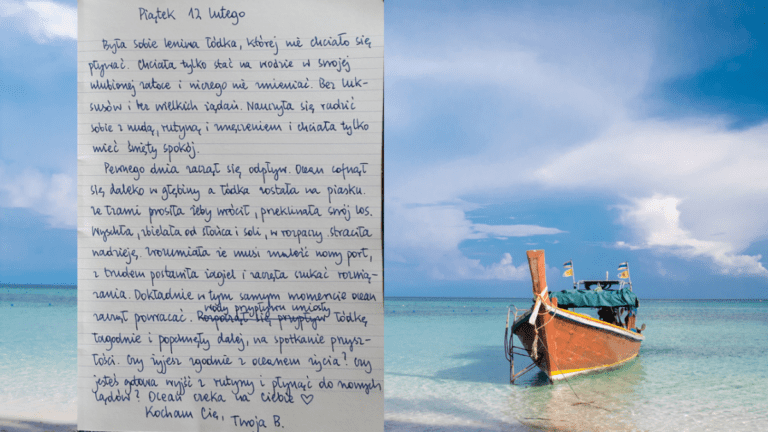 Piątek 12 lutego
Była sobie leniwa łódka, której nie chciało się
pływać. Chciała tylko stać na wodzie w swojej
ulubionej zatoce i niczego nie zmieniać. Bez luk-
susów i bez wielkich żądań. Nauczyła się radzić
sobie z nudą, rutyną i zmęczeniem i chciała tylko
mieć święty spokój.
Pewnego dnia zaczął się odpływ. Ocean cofnął
się daleko w głębiny a łódka została na piasku.
Ze łzami prosiła żeby wrócił, przeklinała swój los.
Wyschła, zbielała od słońca i soli, w rozpaczy straciła
nadzieję, zrozumiała że musi znaleźć nowy port,
z trudem postawiła żagiel i zaczęła szukać rozwią-
zania. Dokładnie w tym samym momencie ocean
zaczął powracać. Rozpoczął się przypływ łódkę
wody przypływu uniosły
łagodnie i popchnęły dalej, na spotkanie przysz-
łości. Czy żyjesz zgodnie z oceanem życia? Czy
jesteś gotowa wyjść z rutyny i płynąć do nowych
lądów? Ocean czeka na ciebie ♡
Kocham Cię, Twoja B.